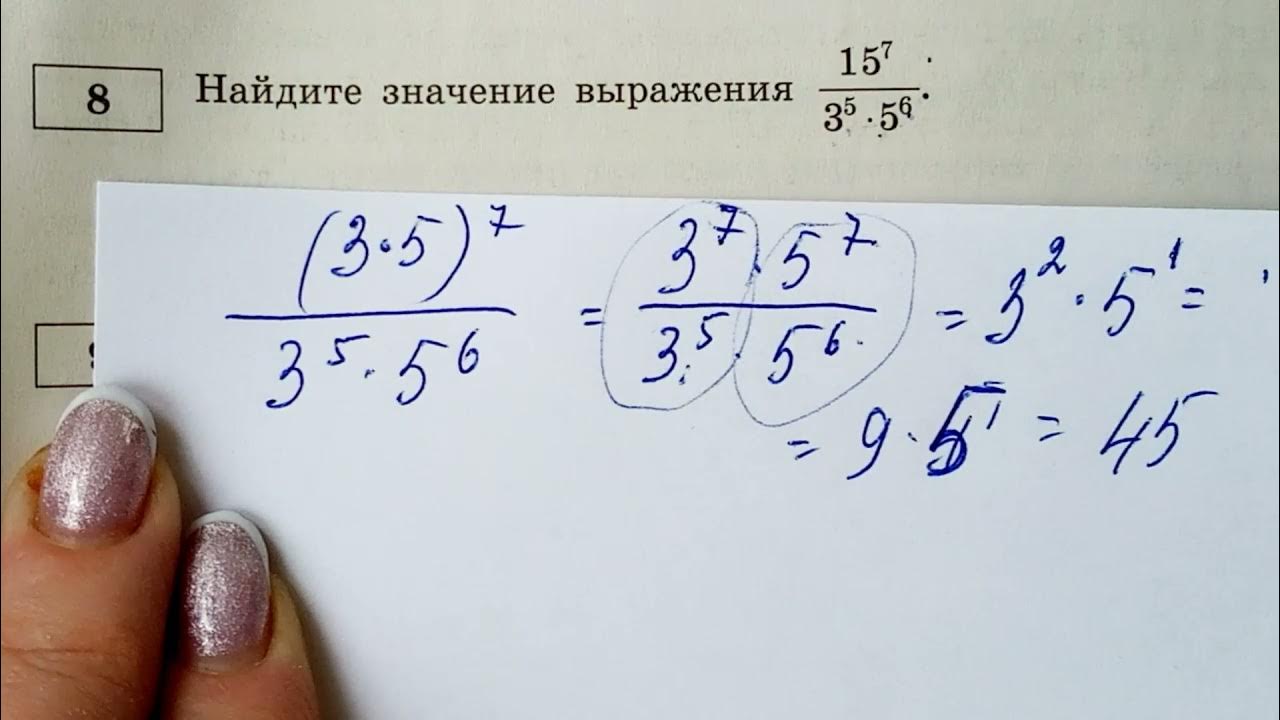 8 Найдите значение выражения 15⁷ / 3⁵ · 5⁶.
(3·5)⁷ / 3⁵·5⁶ = 3⁷·5⁷ / 3⁵·5⁶ = 3²·5¹ =
= 9·5¹ = 45